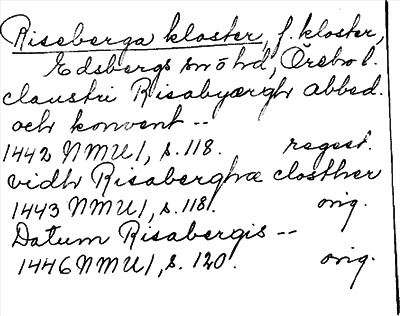 Riseberga kloster, f. kloster,
Edsbergs sn o hd, Örebro l.
claustri Risabyærgh abbed.
och konvent --
1442 NMU 1, s. 118. regest.
vidh Risaberghæ closther
1443 NMU 1, s. 118. orig.
Datum Risabergis --
1446 NMU 1, s. 120. orig.